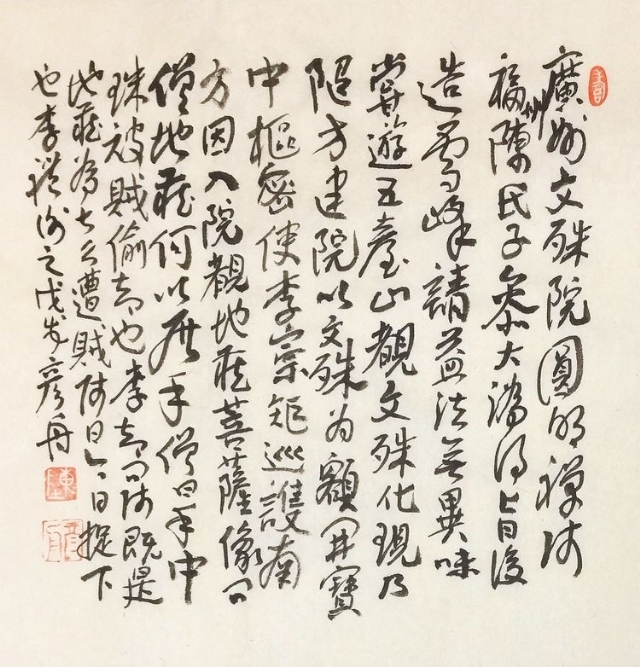 廣州文殊院圓明禪師
福州陳氏子參大溈得旨後
造雪峰請益法無異味
嘗遊五臺山覩文殊化現乃
隨方建院以文殊為額開寶
中樞密使李宗矩巡護南
方因入院觀地藏菩薩像問
僧地藏何以展手僧曰手中
珠被賊偷却也李却問師既是
地藏為什么遭賊師曰今日捉下
也李禮謝之戊戌彥舟